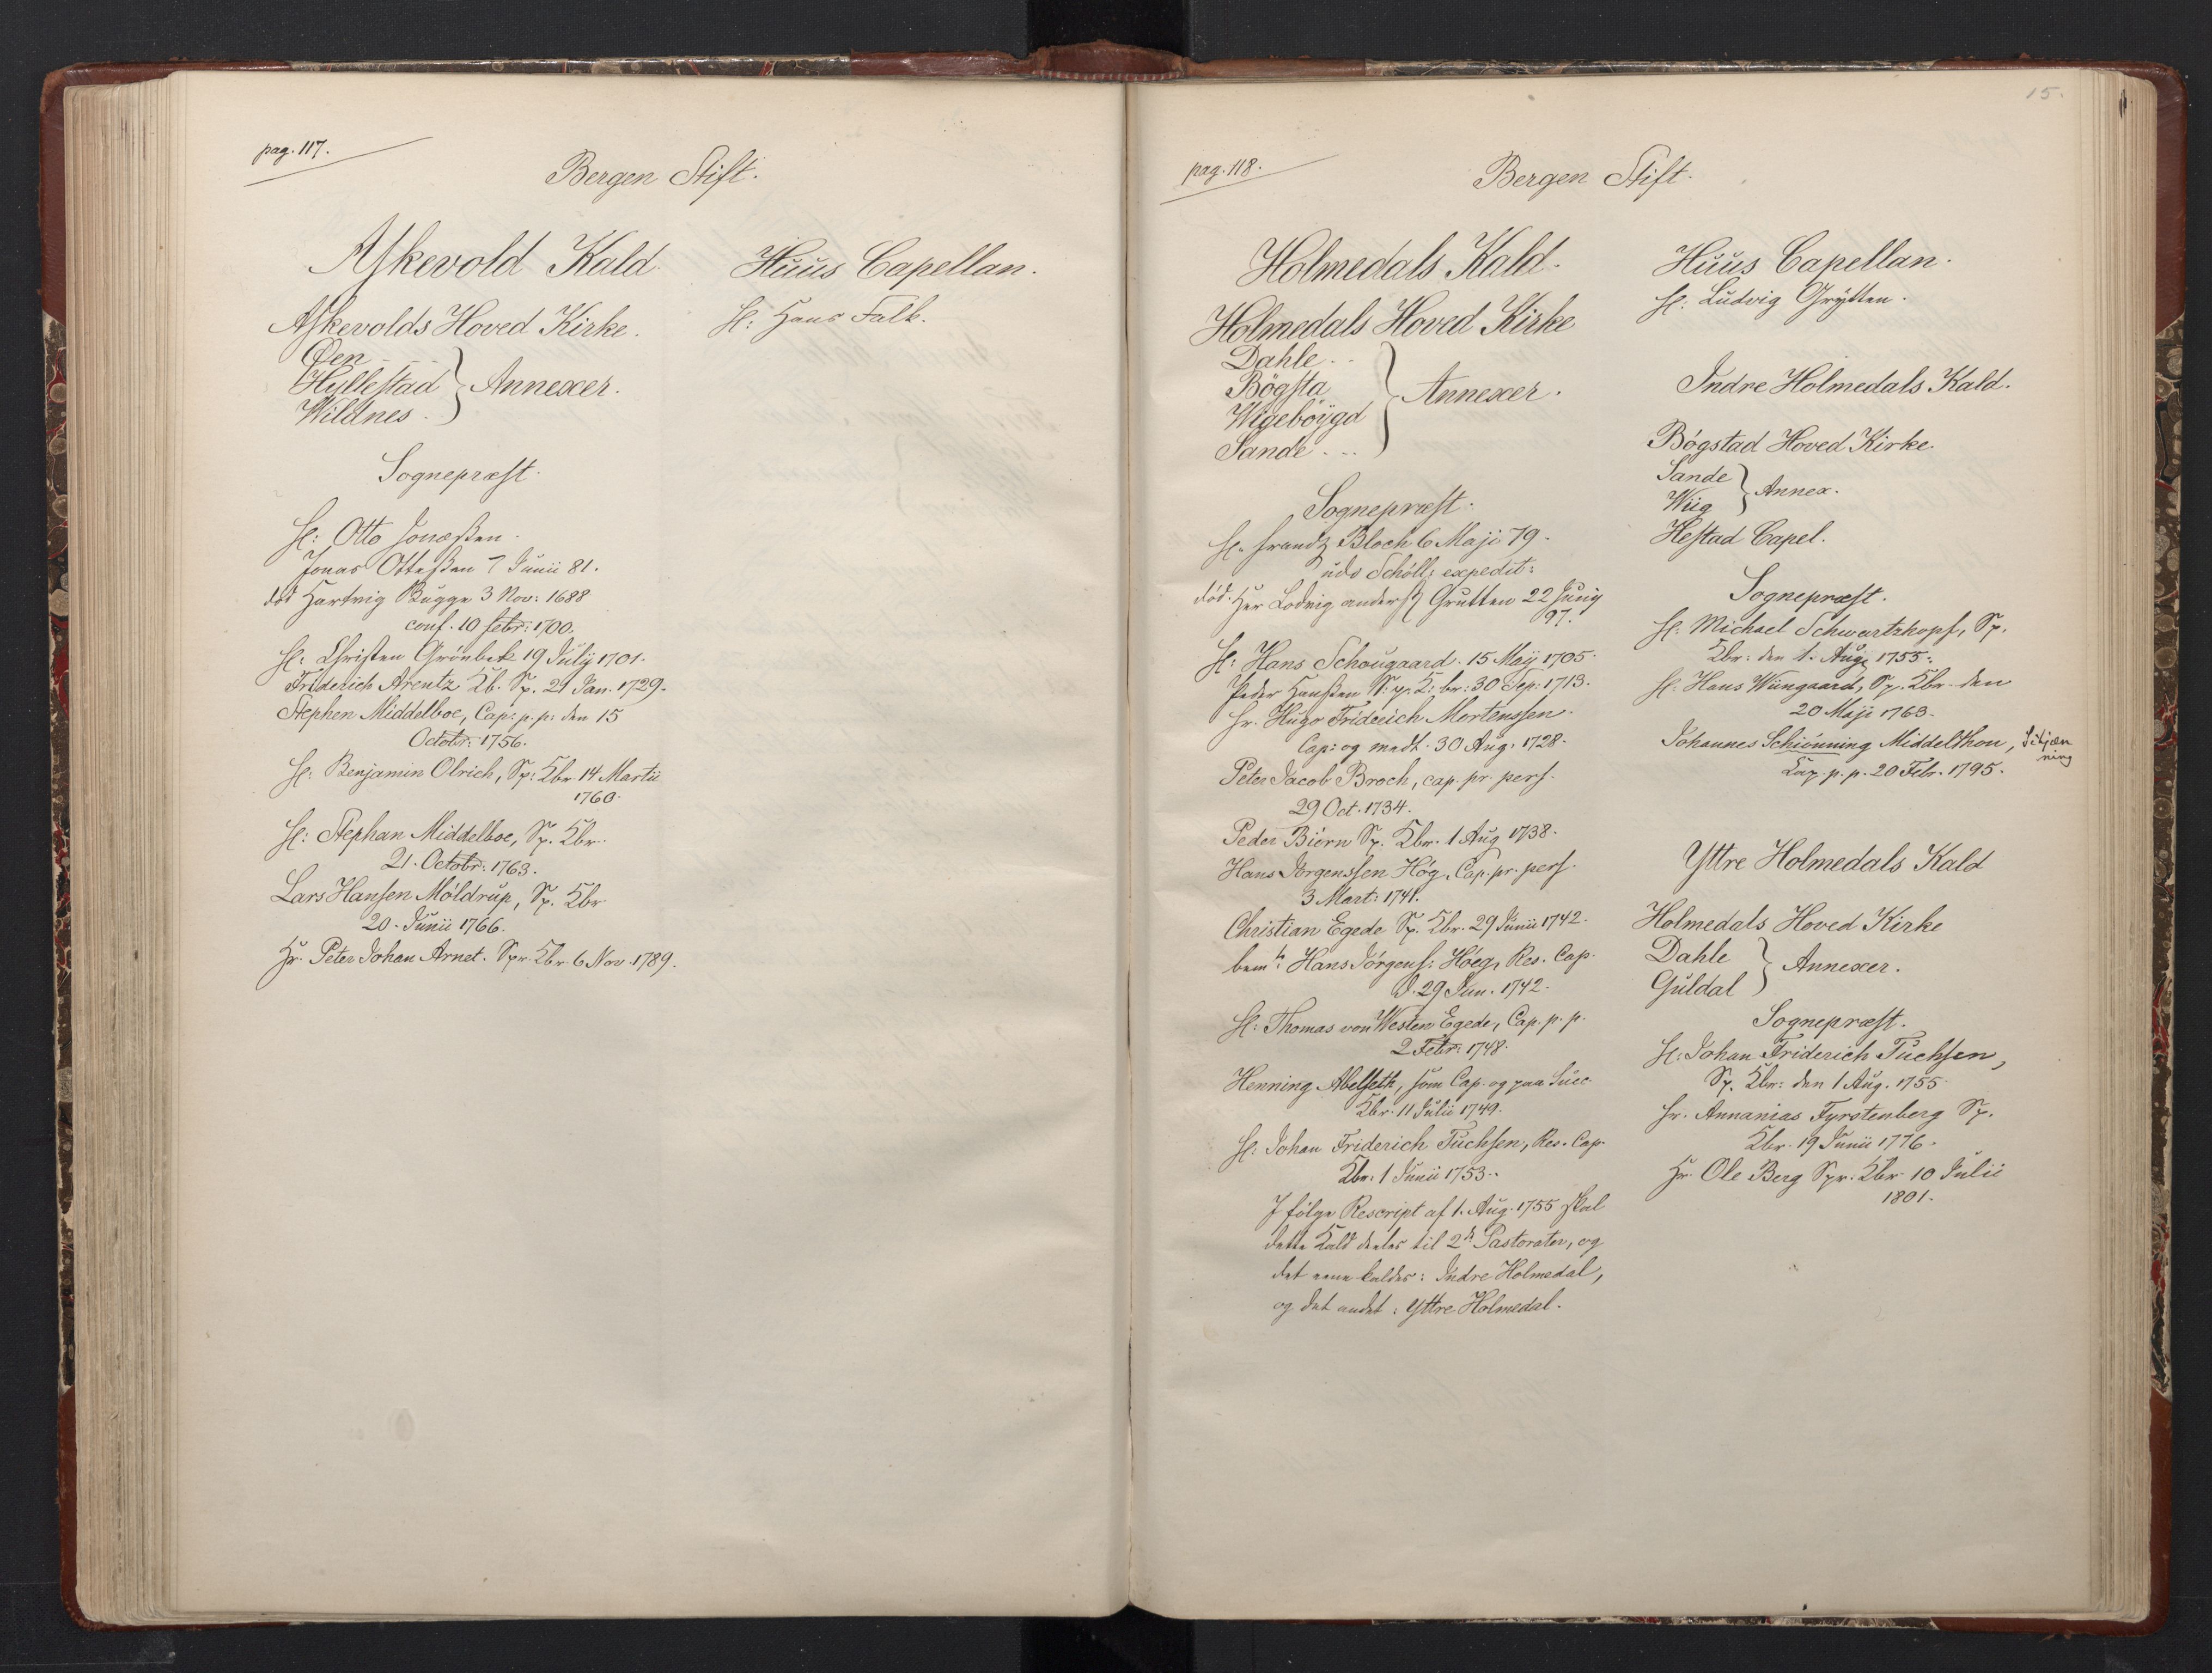 pag. 117.
Bergen Stift.
Askevold Kald
Askevolds Hoved Kirke.
Øen
Hyllestad } Annexer.
Wildnes
Sognepræst.
H: Otto Jonæssen.
Jonas Ottessen 7 Junii 81.
död Hartvig Bugge 3 Nov: 1688
conf. 10 febr: 1700.
H: Christen Grönbek 19 July 1701.
Friderich Arentz Kb. Sp. 21 Jan. 1729.
Stephen Middelboe, Cap: p. p: den 15
Octobr: 1756.
H: Benjamin Olrich, Sp: Kbr 14 Martii
1760.
H: Stephan Middelboe, Sp. Kbr.
21. Octobr: 1763.
Lars Hansen Möldrup, Sp. Kbr
20. Junii 1766.
Hr. Peter Johan Arnet. Spr. Kbr. 6 Nov. 1789.
Huus Capellan.
H: Hans Falk.
15.
pag. 118.
Bergen Stift.
Holmedals Kald.
Holmedals Hoved Kirke
Dahle
Bögsta
Wigeböygd } Annexer.
Sande
Sognepræst.
H. frandz Bloch 6 Maji 79.
uds Schöll: expedit:
död. Her Lodvig anderss Grutten 22 Junij
97.
H: Hans Schougaard. 15 Maij 1705.
Peder Hanssen S: p. K: br: 30 Sep: 1713.
Hr. Hugo Friderich Mortenssen.
Cap: og medt. 30 Aug. 1728.
Peter Jacob Broch, cap. pr. pers.
29 Oct. 1734.
Peder Biörn Sp. Kbr. 1 Aug 1738.
Hans Jörgenssen Hög, Cap. pr. pers.
3 Mart: 1741.
Christian Egede Sp. Kbr. 29 Junii 1742.
bemte Hans Jörgens: Höeg, Res. Cap.
d. 29 Jun. 1742.
H: Thomas von Westen Egede, Cap. p. p.
2 Febr: 1748.
Henning Abelseth, som Cap. og paa Succ.
Kbr. 11 Julii 1749.
H: Johan Friderich Tuchsen, Res. Cap.
Kbr. 1 Junii 1753.
I fölge Rescript af 1. Aug. 1755 skal
dette Kald deeles til 2de Pastorater, og
det eene kaldes: Indre Holmedal,
og det andet: Yttre Holmedal.
Huus Capellan.
H: Ludvig Grytten.
Indre Holmedals Kald.
Bögstad Hoved Kirke.
Sande
Wiig } Annex.
Hestad Capel.
Sognepræst.
H: Michael Schwartzkopf, Sp.
Kbr: den 1. Aug: 1755.
H: Hans Wiingaard, Sp. Kbr. den
20 Maji 1763.
Johannes Schiönning Middelthon,
Cap. p. p. 20 Febr. 1795.
Yttre Holmedals Kald
Holmedals Hoved Kirke
Dahle
Guldal } Annexer.
Sognepræst.
H: Johan Friderich Tuchsen,
Sp. Kbr: den 1 Aug. 1755.
Hr. Annanias Fyrstenberg Sp.
Kbr. 19 Junii 1776.
Hr. Ole Berg Spr. Kbr 10 Julii
1801.